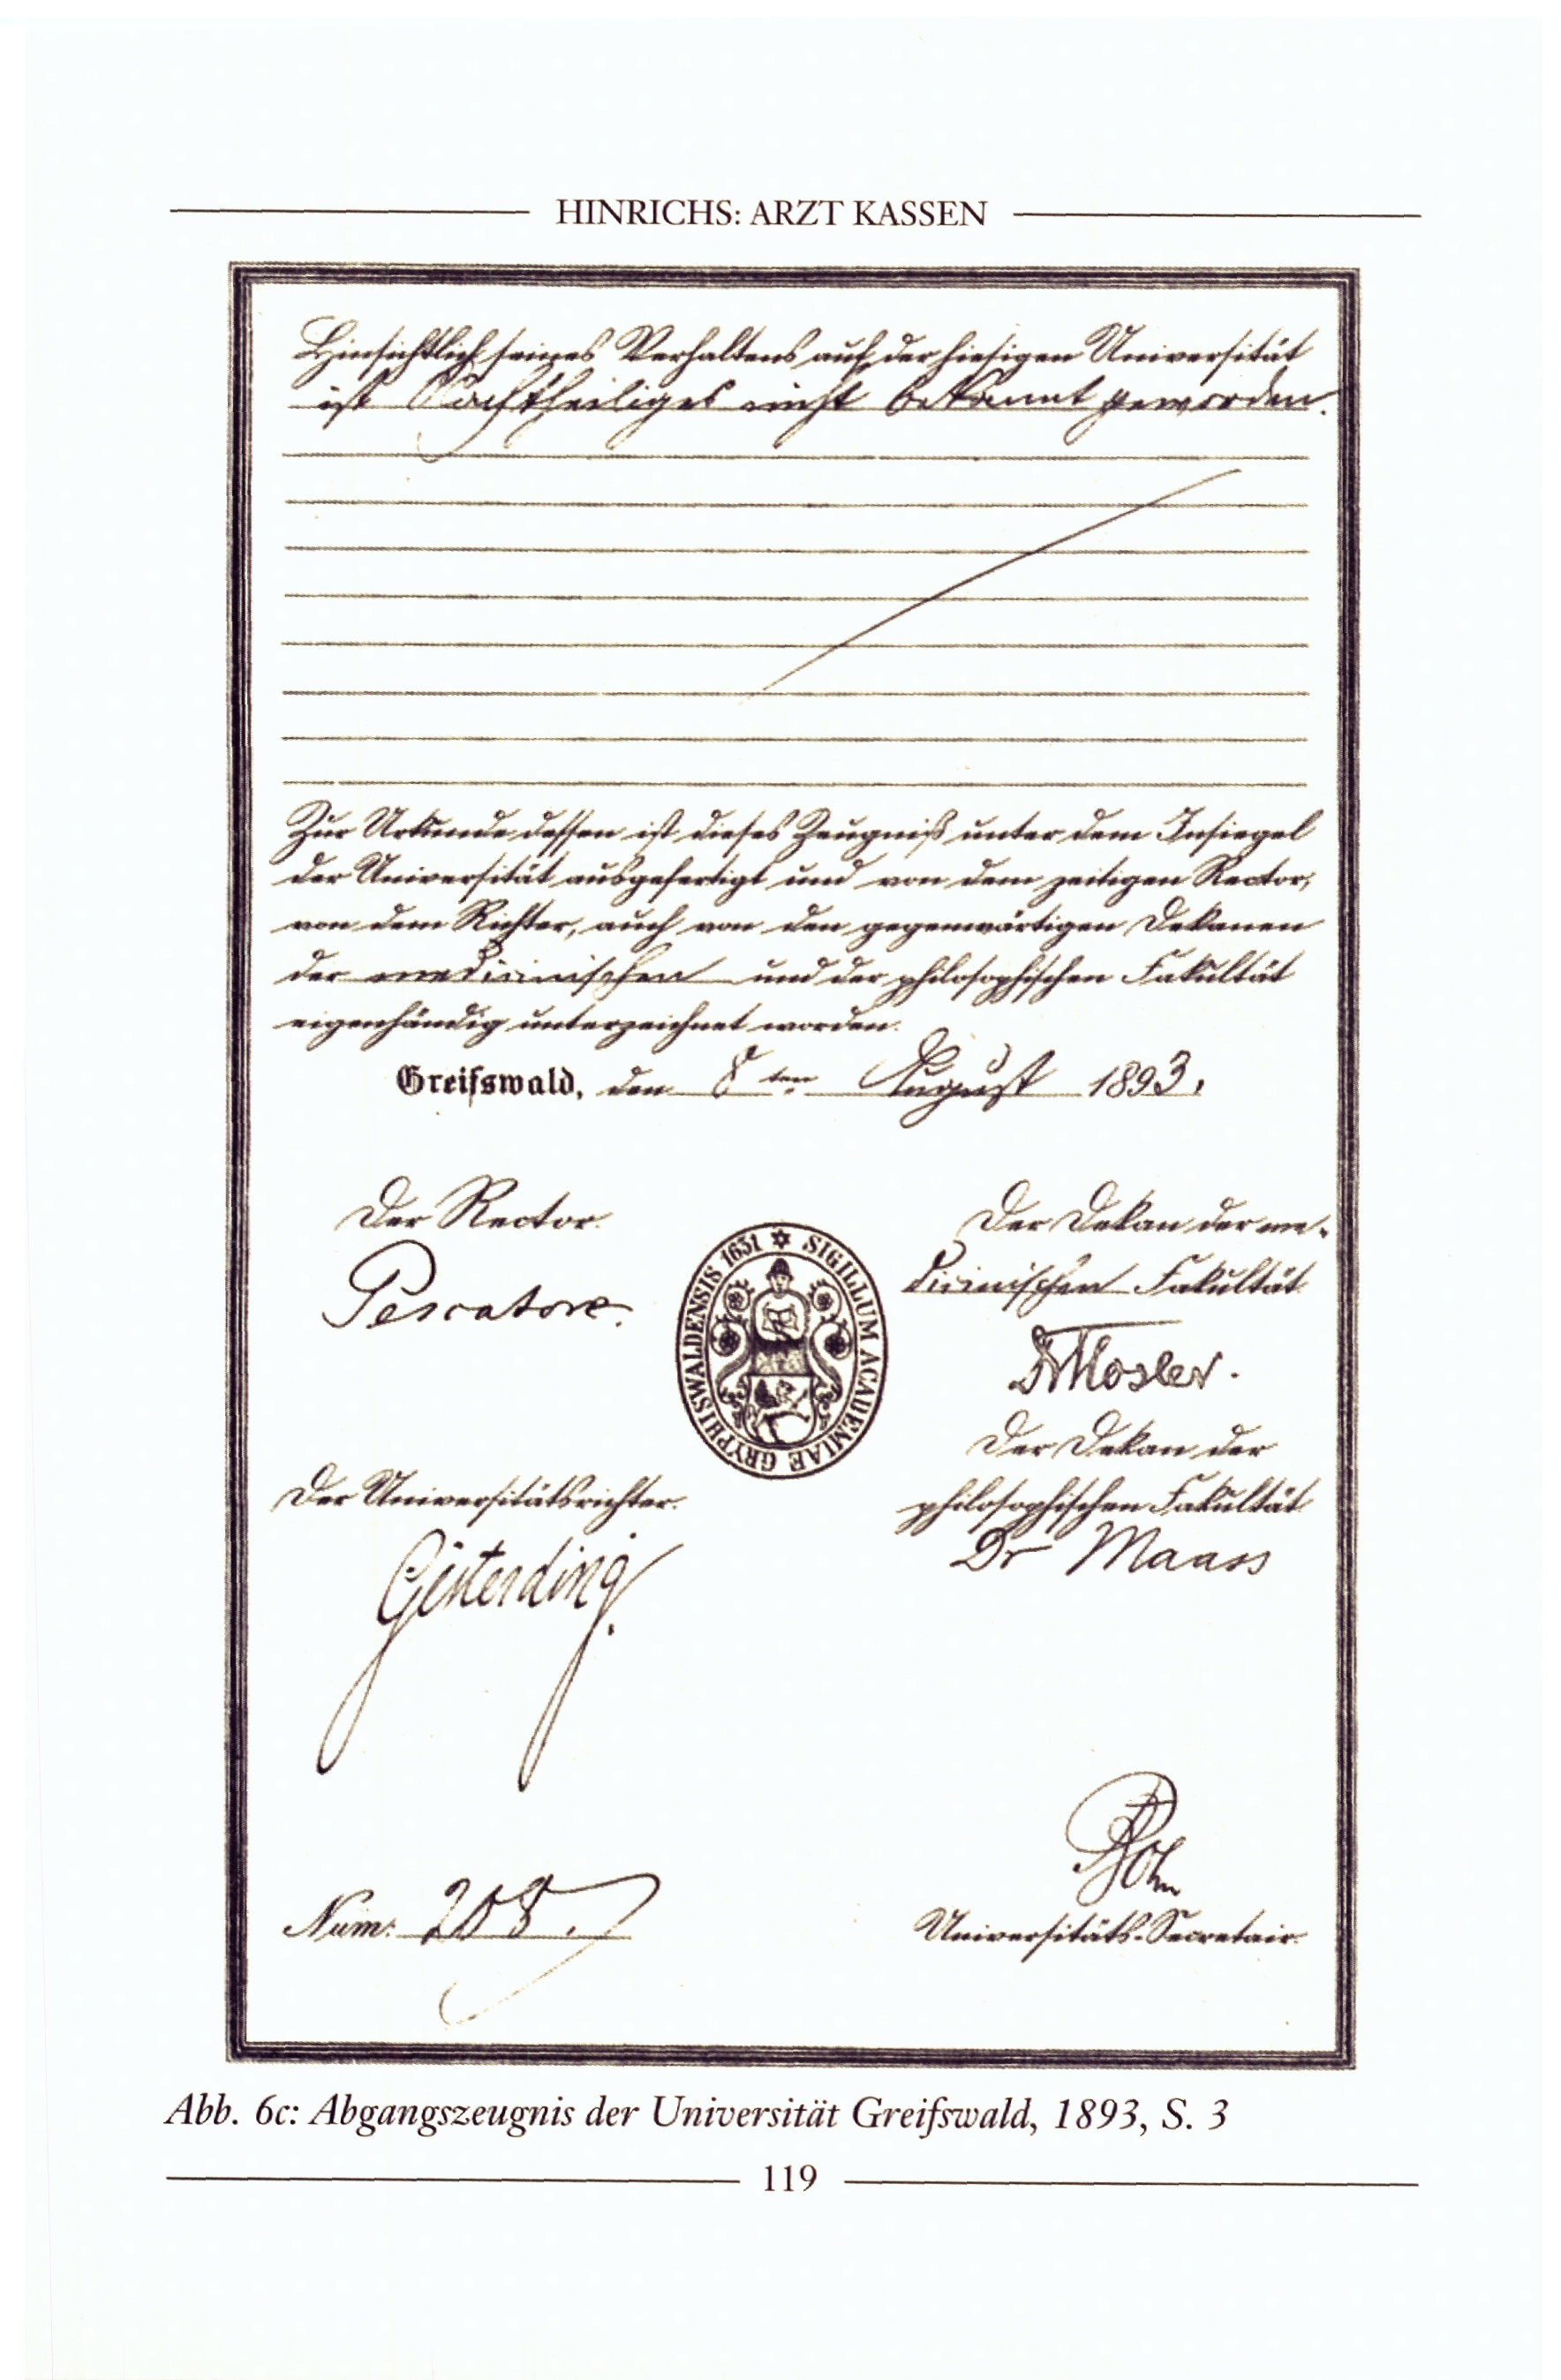 HINRICHS: ARZT KASSEN
Hinsichtlich seines Verhaltens auf der hiesigen Universität
ist Nachtheiliges nicht bekannt geworden.
Zur Urkunde dessen ist dieses Zeugniß unter dem Insiegel
der Universität ausgefertigt und von dem zeitigen Rector,
von dem Richter, auch von den gegenwärtigen Dekanen
der medicinischen und der philosophischen Fakultät
eigenhändig unterzeichnet worden.
Greifswald, den 8ten August 1893.
Der Rector.
Pescatore.
Der Dekan der me-
dicinischen Fakultät
Mosler.
SIGILLUM ACADEMIAE GRYPHISWALDENSIS 1631
Der Dekan der
philosophischen Fakultät
Dr Maass
Der Universitätsrichter.
Gesterding.
Num. 208.
Universitäts-Secretair.
Abb. 6c: Abgangszeugnis der Universität Greifswald, 1893, S. 3
119